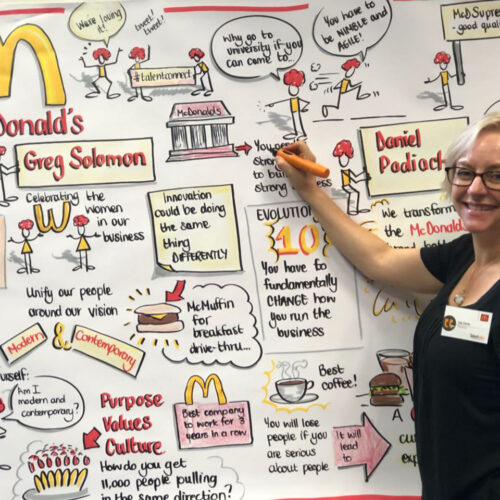 We're loving it!
tweet! tweet!
#talentconnect
Why go to
university if you
can come to...
You have to
be NIMBLE and
AGILE!
McDSupre
-good quali
Donald's
McDonald's
Greg Solomon
Daniel
Padiach
to bu
strong
Celebrating the
women
in our
business
W
Innovation
could be doing
the same
thing
DIFFERENTLY
EVOLUTION
10
You have to
fundamentally
CHANGE how
you run the
business
We transform
the McDonald
Unify our people
around our vision
Modern
&
Contemporary
McMuffin
for
breakfast
drive-thru...
yourself:
Am I
modern and
contemporary?
Purpose
Values
Culture.
How do you get
11,000 people pulling
in the same direction?
Best company
to work for 3
years in a row
Best
coffee!
You will lose
people if you
are serious
about people
It will
lead to